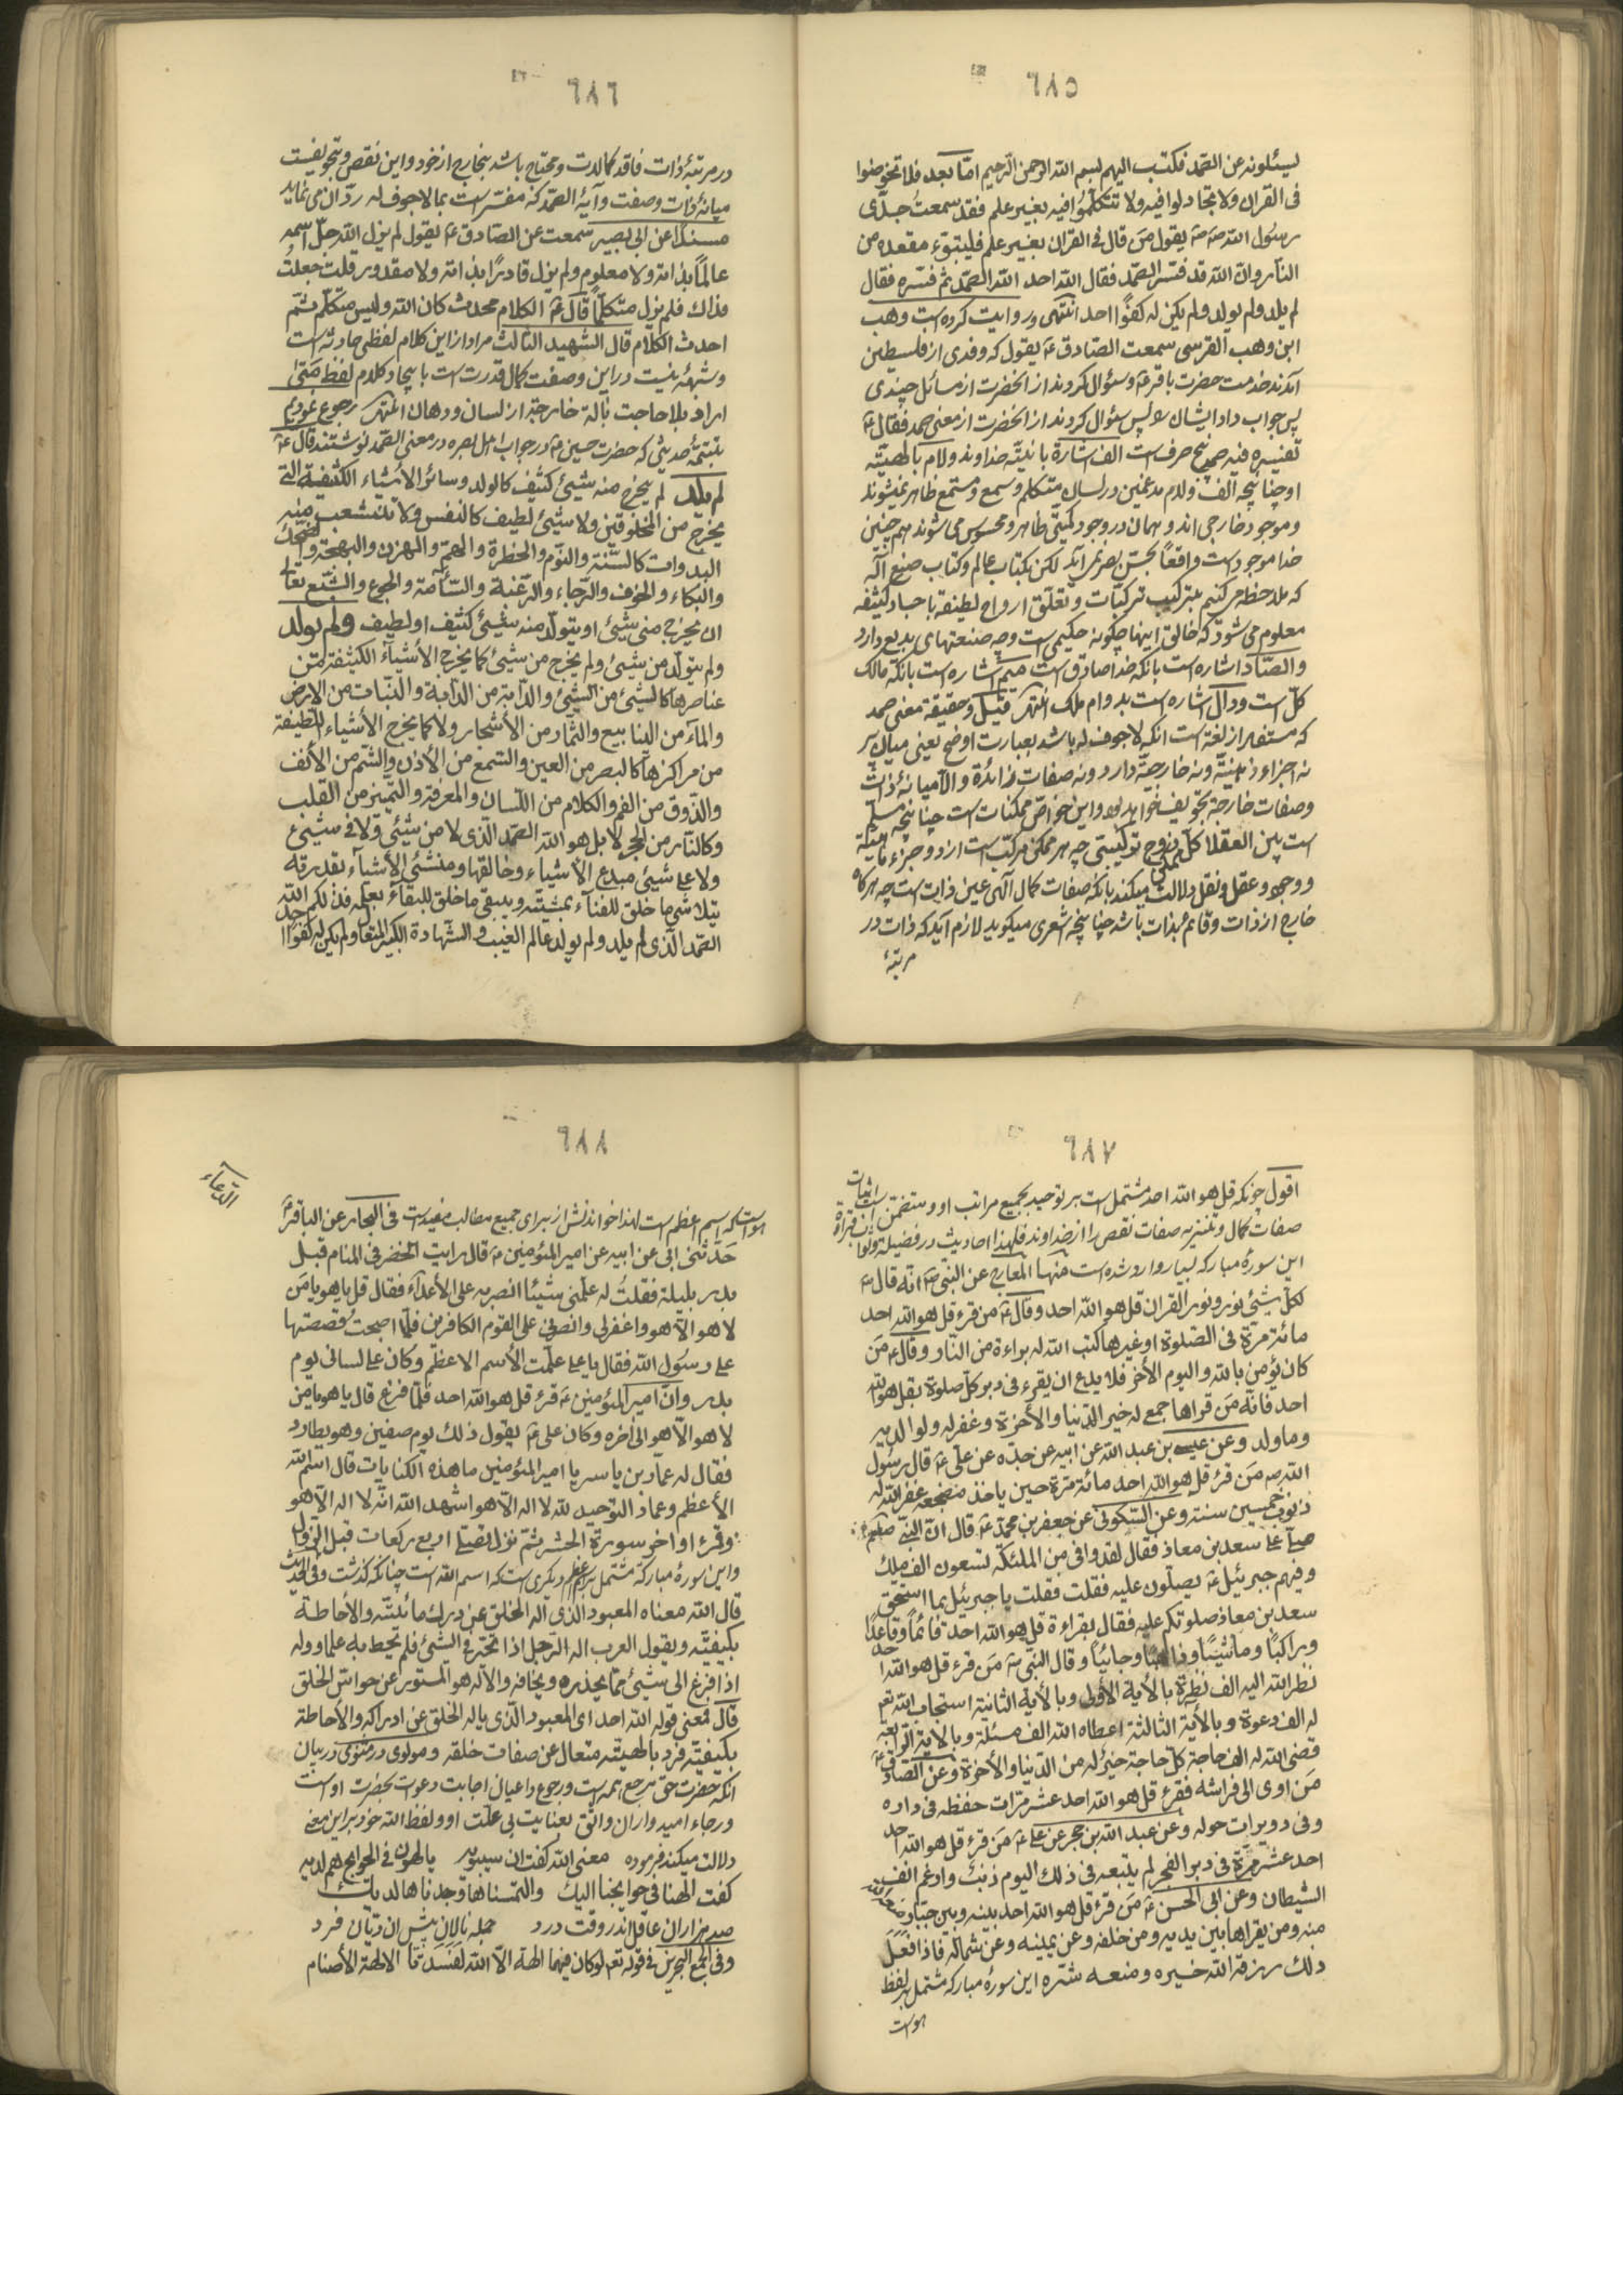 ٦٨٥
یسئلونه عن الصمد فکتب الیهم بسم الله الرحمن الرحیم اما بعد فلا تخوضوا
فی القران ولا تجادلوا فیه ولا تتکلموا فیه بغیر علم فقد سمعت جدی
رسول الله ص یقول من قال فی القران بغیر علم فلیتبوء مقعده من
النار وان الله قد فسر الصمد فقال الله احد الله الصمد ثم فسره فقال
لم یلد ولم یولد ولم یکن له کفوا احد انتهی وروایت کرده است وهب
ابن وهب القرسی سمعت الصادق ع یقول که وفدی از فلسطین
آمدند خدمت حضرت باقر ع وسئوال کردند از انحضرت از مسائل چندی
پس جواب داد ایشان را پس سئوال کردند از انحضرت از معنی صمد فقال ع
تفسیره فیه صمد پنج حرف است الف اشارة بانیته خداوند ولام بالهیته
او چنانچه الف ولام مدغمین در لسان متکلم وسمع ومستمع ظاهر نمیشوند
وموجود خارجی اند وهمان در وجود کتبتی ظاهر ومحسوس می شوند هم چنین
خدا موجود است واقعا بحس بصر نمی آید لکن بکتاب عالم وکتاب صنع اله
که ملاحظه میکنیم بترکیب ترکیبات وتعلق ارواح لطیفة باجساد کثیفه
معلوم می شود که خالق اینها چگونه حکیمی است وچه صنعتهای بدیع دارد
والصاد اشاره است بانکه خدا صادق است میم اشاره است بانکه مالک
کل است ودال اشاره است بدوام ملک انتهی قیل وحقیقة معنی صمد
که مستفاد از لغة است انکه لاجوف له باشد بعبارت اوضح یعنی میان پر
نه اجزاء ذهنیة ونه خارجیة دارد ونه صفات زائدة والا میانهٔ ذات
وصفات خارجة تجویف خواهد بود واین خواص ممکنات است چنانچه مسلم
است بین العقلا کل ممکن زوج ترکیبی چه هر ممکن مرکب است از دو جزء ماهیته
ووجود وعقل ونقل دلالت میکند بانکه صفات کمال الهی عین ذات است چه هرکاه
خارج از ذات وقائم بذات باشد چنانچه اشعری میکوید لازم آید که ذات در
مرتبهٔ
٦٨٦
در مرتبهٔ ذات فاقد کمالست ومحتاج باشد بخارج از خود واین نقص وتجویفست
میانهٔ ذات وصفت وآیهٔ الصمد که مفسر است بما لاجوف له رد ان می نماید
مسندا عن ابی بصیر سمعت عن الصادق ع یقول لم یزل الله جل اسمه
عالما بذاته ولا معلوم ولم یزل قادرا بذاته ولا مقدور قلت جعلت
فداک فلم یزل متکلما قال ع الکلام محدث کان الله ولیس متکلم ثم
احدث الکلام قال الشهید الثالث مراد از این کلام لفظی حادثه است
وشبهة نیست در این وصفت کمال قدرت است بایجاد کلام لفظ متی
اراد بلا حاجت بآلة خارجة از لسان ودهان انتهی رجوع نمودیم
بتتمهٔ حدیثی که حضرت حسین ع در جواب اهل بصره در معنی الصمد نوشتند قال ع
لم یلد لم یخرج منه شیئ کثیف کالولد وسائر الأشیاء الکثیفة التی
یخرج من المخلوقین ولا شیئ لطیف کالنفس ولا تتشعب منه
البدوات کالسنة والنوم والخطرة والهم والحزن والبهجة والضحک
والبکاء والخوف والرجاء والرغبة والسأمة والجوع والشبع تعالی
ان یخرج منه شیئ او یتولد منه شیئ کثیف او لطیف ولم یولد
ولم یتولد من شیئ ولم یخرج من شیئ کما یخرج الأشیآء الکثیفة من
عناصرها کالشیئ من الشیئ والدابة من الدابة والنبات من الارض
والمآء من الینابیع والثمار من الأشجار ولا کما یخرج الأشیاء اللطیفة
من مراکزها کالبصر من العین والسمع من الأذن والشم من الأنف
والذوق من الفم والکلام من اللسان والمعرفة والتمیز من القلب
وکالنار من الحجر لا بل هو الله الصمد الذی لا من شیئ ولا فی شیئ
ولا علی شیئ مبدع الاشیاء وخالقها ومنشئ الأشیآء بقدرته
یتلاشی ما خلق للفناء بمشیته ویبقی ما خلق للبقاء بعلمه فذلکم الله
الصمد الذی لم یلد ولم یولد عالم الغیب والشهادة الکبیر المتعال ولم یکن له کفوا احد
٦٨٧
اقول چونکه قل هو الله احد مشتمل است بر توحید بجمیع مراتب او ومتضمن است اثبات
صفات کمال وتنزیه صفات نقص را از خداوند فلهذا احادیث در فضیلة وثواب قراءة
این سورهٔ مبارکه بسیار وارد شده است منها المعارج عن النبی ص انه قال ع
لکل شیئ نور ونور القران قل هو الله احد وقال ع من قرء قل هو الله احد
مائة مرة فی الصلوة او غیرها کتب الله له براءة من النار وقال ع من
کان یؤمن بالله والیوم الأخر فلا یدع ان یقرء فی دبر کل صلوة بقل هو الله
احد فانه من قراها جمع له خیر الدنیا والأخرة وغفر له ولوالدیه
وما ولد وعن عیسی بن عبد الله عن ابیه عن جده عن علی ع قال رسول
الله ص من قرء قل هو الله احد مائة مرة حین یاخذ مضجعه غفر الله له
ذنوب خمسین سنة وعن السکونی عن جعفر بن محمد ع قال ان النبی صلعم
صلی علی سعد بن معاذ فقال لقد وافی من الملئکة تسعون الف ملک
وفیهم جبرئیل ع یصلون علیه فقلت یا جبرئیل بما استحق
سعد بن معاذ صلوتکم علیه فقال بقراءة قل هو الله احد قائما وقاعدا
وراکبا وماشیا وذاهبا وجائیا وقال النبی ص من قرء قل هو الله احد
نظر الله الیه الف نظرة بالأیة الأولی وبالأیة الثانیة استجاب الله تعم
له الف دعوة وبالأیة الثالثة اعطاه الله الف مسئلة وبالأیة الرابعة
قضی الله له الف حاجة کل حاجة خیر له من الدنیا والأخرة وعن الصادق ع
من اوی الی فراشه فقرء قل هو الله احد عشر مرات حفظه فی داره
وفی دویرات حوله وعن عبد الله بن حجر عن علی ع من قرء قل هو الله احد
احد عشر مرة فی دبر الفجر لم یتبعه فی ذلک الیوم ذنب وادغم انف
الشیطان وعن ابی الحسن ع من قرء قل هو الله احد بینه وبین جبار
منه ومن یقراها بین یدیه ومن خلفه وعن یمینه وعن شماله فاذا فعل
ذلک رزقه الله خیره ومنعه شره این سورهٔ مبارکه مشتمل بر لفظ
هو است
٦٨٨
الدعاء
هو است که اسم اعظم است لهذا خواندنش از برای جمیع مطالب مفید است فی البحار عن الباقر ع
حدثنی ابی عن ابیه عن امیر المئومنین ع قال رایت الخضر فی المنام قبل
بدر بلیلة فقلت له علمنی شیئا انصر به علی الأعداء فقال قل یا هو یا من
لا هو الا هو واغفر لی وانصرنی علی القوم الکافرین فلما اصبحت قصصتها
علی رسول الله فقال یا علی علمت الأسم الاعظم وکان علی لسانی یوم
بدر وان امیر المئومنین ع قرء قل هو الله احد فلما فرغ قال یا هو یا من
لا هو الا هو الی اخره وکان علی ع یقول ذلک یوم صفین وهو یطارد
فقال له عمار بن یاسر یا امیر المئومنین ما هذه الکنایات قال اسم الله
الأعظم وعماد التوحید لله لا اله الا هو اشهد الله انه لا اله الا هو
وقرء اواخر سورة الحشر ثم نزل فصلی اربع رکعات قبل الزوال
واین سورهٔ مبارکه مشتمل بر اسم اعظم دیکری است که اسم الله است چنانکه گذشت وفی الحدیث
قال الله معناه المعبود الذی اله الخلق عن درک مائیته والأحاطة
بکیفیته ویقول العرب اله الرجل اذا تحیر فی الشیئ فلم یحط به علما ووله
اذا فزع الی شیئ مما یحذره ویخافه والاله هو المستور عن حواس الخلق
قال فمعنی قوله الله احد ای المعبود الذی یاله الخلق عن ادراکه والأحاطة
بکیفیته فرد بالهیته متعال عن صفات خلقه ومولوی در مثنوی در بیان
انکه حضرت حق مرجع همه است ورجوع داعیان اجابت دعوت بحضرت اوست
ورجاء امیدواران واثق بعنایت بی علت او ولفظ الله خود بر این معنی
دلالت میکند فرموده معنی الله کفت ان سیبویه یالهون فی الحوایج هم لدیه
کفت الهنا فی حوایجنا الیک والتمسناها وجدناها لدیک
صد هزاران عاقل اندر وقت درد جمله نالان پیش ان دیان فرد
وفی مجمع البحرین فی قوله تعم لو کان فیهما الهة الا الله لفسدتا الالهة الأصنام